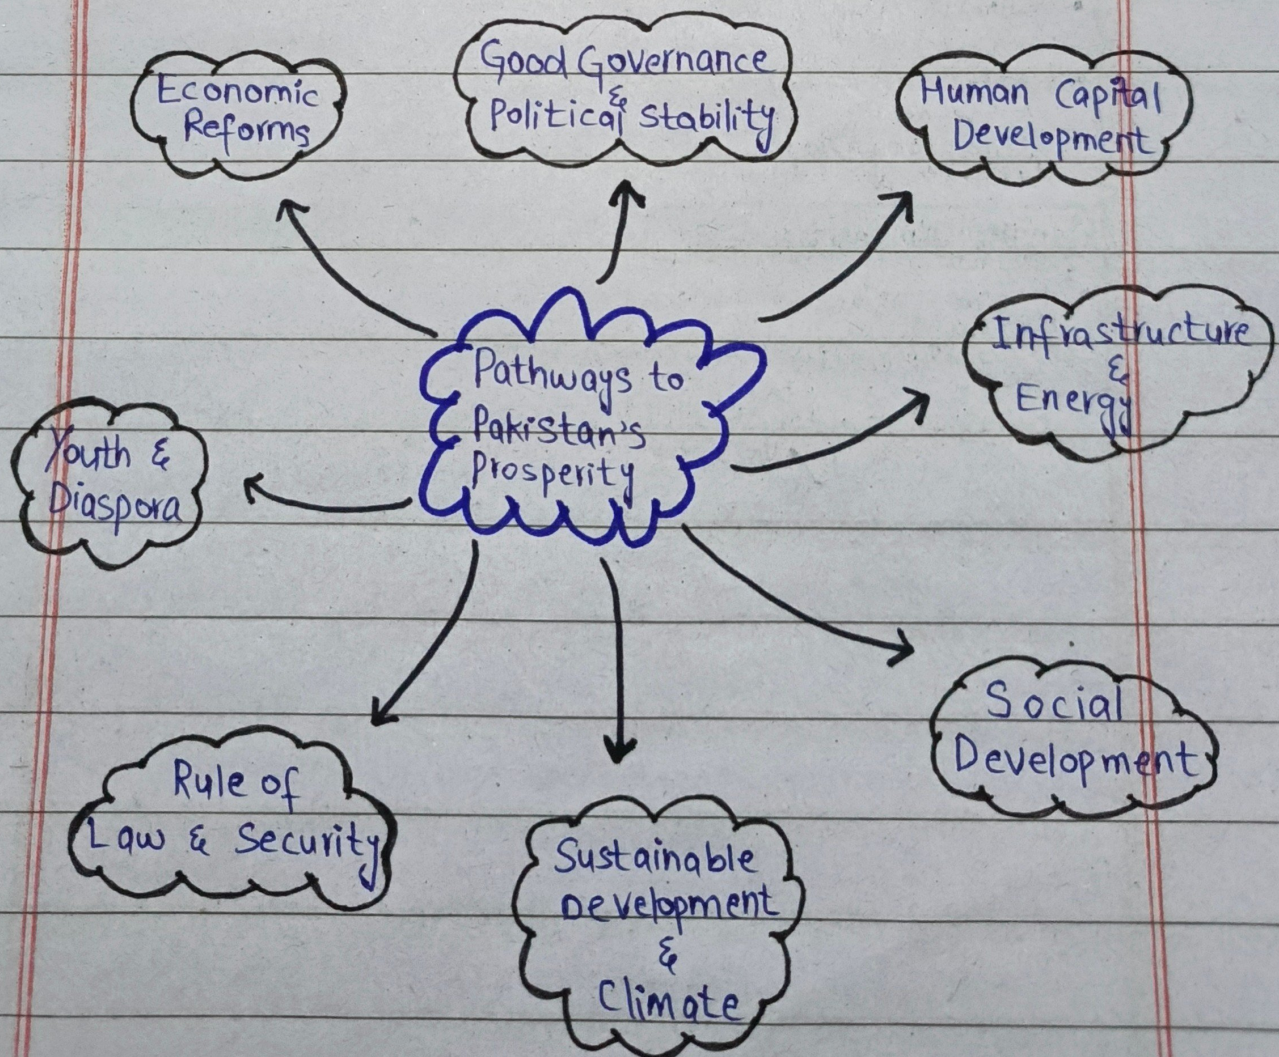 Economic
Reforms
Good Governance
&
Political Stability
Human Capital
Development
Infrastructure
&
Energy
Pathways to
Pakistan's
Prosperity
Youth &
Diaspora
Social
Development
Rule of
Law & Security
Sustainable
Development
&
Climate